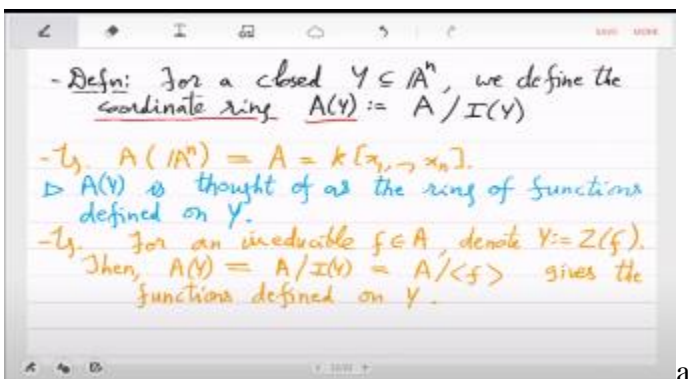 - Defn: For a closed Y ⊆ 𝔸ⁿ, we define the
coordinate ring A(Y) := A / I(Y)
- Eg. A(𝔸ⁿ) = A = k[x₁, ⋯, xₙ].
▷ A(Y) is thought of as the ring of functions
defined on Y.
- Eg. For an irreducible f ∈ A, denote Y := Z(f).
Then, A(Y) = A/I(Y) = A/<f> gives the
functions defined on Y.
a